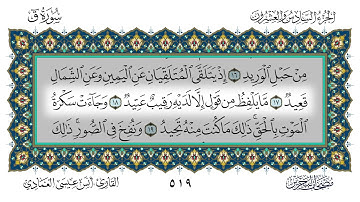 الجزء السادس والعشرون
سورة ق
مِنْ حَبْلِ ٱلْوَرِيدِ ١٦ إِذْ يَتَلَقَّى ٱلْمُتَلَقِّيَانِ عَنِ ٱلْيَمِينِ وَعَنِ ٱلشِّمَالِ
قَعِيدٌ ١٧ مَّا يَلْفِظُ مِن قَوْلٍ إِلَّا لَدَيْهِ رَقِيبٌ عَتِيدٌ ١٨ وَجَآءَتْ سَكْرَةُ
ٱلْمَوْتِ بِٱلْحَقِّ ذَٰلِكَ مَا كُنتَ مِنْهُ تَحِيدُ ١٩ وَنُفِخَ فِى ٱلصُّورِ ذَٰلِكَ
٥١٩
القارئ: أنس عيسى العمادي